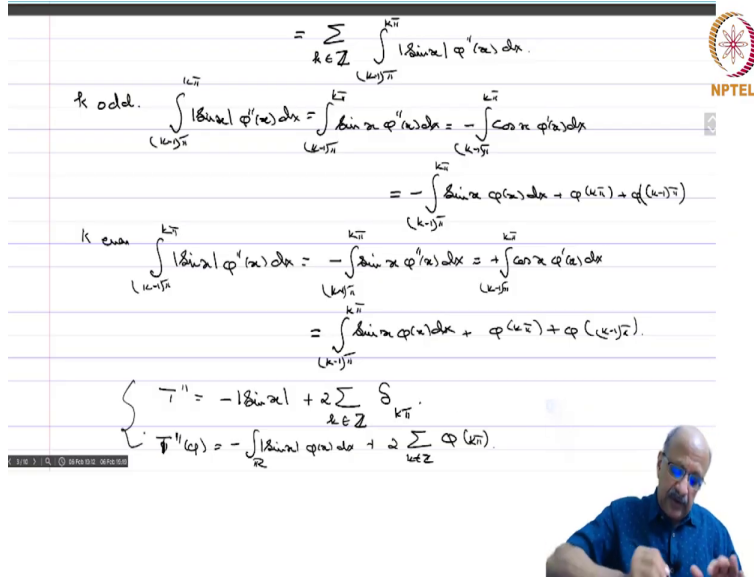 = ∑_{k∈ℤ} ∫_{(k-1)π}^{kπ} |sin x| φ''(x) dx.
NPTEL
k odd. ∫_{(k-1)π}^{kπ} |sin x| φ''(x) dx = ∫_{(k-1)π}^{kπ} sin x φ''(x) dx = - ∫_{(k-1)π}^{kπ} cos x φ'(x) dx
= - ∫_{(k-1)π}^{kπ} sin x φ(x) dx + φ(kπ) + φ((k-1)π)
k even ∫_{(k-1)π}^{kπ} |sin x| φ''(x) dx = - ∫_{(k-1)π}^{kπ} sin x φ''(x) dx = + ∫_{(k-1)π}^{kπ} cos x φ'(x) dx
= ∫_{(k-1)π}^{kπ} sin x φ(x) dx + φ(kπ) + φ((k-1)π).
T'' = -|sin x| + 2 ∑_{k∈ℤ} δ_{kπ}.
T''(φ) = - ∫_ℝ |sin x| φ(x) dx + 2 ∑_{k∈ℤ} φ(kπ).